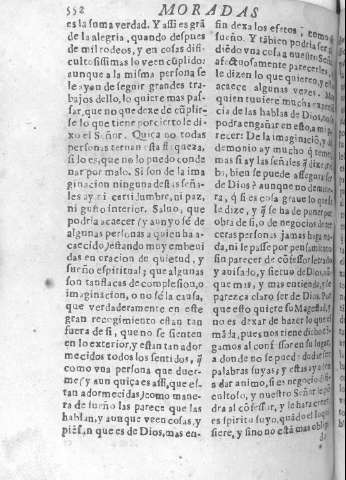 552 MORADAS
es la suma verdad. Y assi es grã
de la alegria, quando despues
de mil rodeos, y en cosas difi-
cultosissimas lo veen cũplido:
aunque a la misma persona se
le ayan de seguir grandes tra-
bajos dello, lo quiere mas pas-
sar, que no que dexe de cũplir-
se lo que tiene por cierto le di-
xo el Señor. Quiça no todas
personas ternan esta flaqueza,
si lo es, que no lo puedo conde
nar por malo. Si son de la ima
ginacion ninguna destas seña-
les ay ni certidumbre, ni paz,
ni gusto interior. Saluo, que
podria acaecer (y aun yo sé de
algunas personas a quien ha a-
caecido) estando muy embeui
das en oracion de quietud, y
sueño espiritual; que algunas
son tan flacas de complesion, o
imaginacion, o no sé la causa,
que verdaderamente en este
gran recogimiento estan tan
fuera de si, que no se sienten
en lo exterior, y estan tan ador
mecidos todos los sentidos, q̃
como vna persona que duer-
me, y aun quiça es assi, que es-
tan adormecidas) como mane-
ra de sueño las parece que las
hablan, y aunque veen cosas, y
piẽsan que es de Dios, mas en-
fin dexa los efetos, como de
sueño. Y tãbien podria ser, pi-
diẽdo vna cosa a nuestro Señor
afectuosamente parecerles, que
le dizen lo que quieren, y esto
acaece algunas vezes. Mas
quien tuuiere mucha experien
cia de las hablas de Dios, no se
podra engañar en esto, a mi pa
recer: De la imaginació, y del
demonio ay mucho q̃ temer,
mas si ay las señales q̃ dixe
bo, bien se puede assegurar ser
de Dios; aunque no de mane-
ra, q̃ si es cosa graue lo que se
le dize, y q̃ se ha de poner por
obra de si, o de negocios de ter
ceras personas jamas haga na-
da, ni le passe por pensamiento
sin parecer de cõfessor letrado
y auisado, y sieruo de Dios, aũ
que mas, y mas entienda, y le
parezca claro ser de Dios. Por
que esto quiere su Magestad, y
no es dexar de hazer lo que el
mãda, pues nos tiene dicho te-
gamos al confessor en su lugar,
a donde no se puede dudar ser
palabras suyas; y estas ayuden
a dar animo, si es negocio difi-
cultoso, y nuestro Señor le põ
dra al cõfessor, y le hara crea
es espiritu suyo, quãdo el lo qui
siere, y sino no está mas obliga